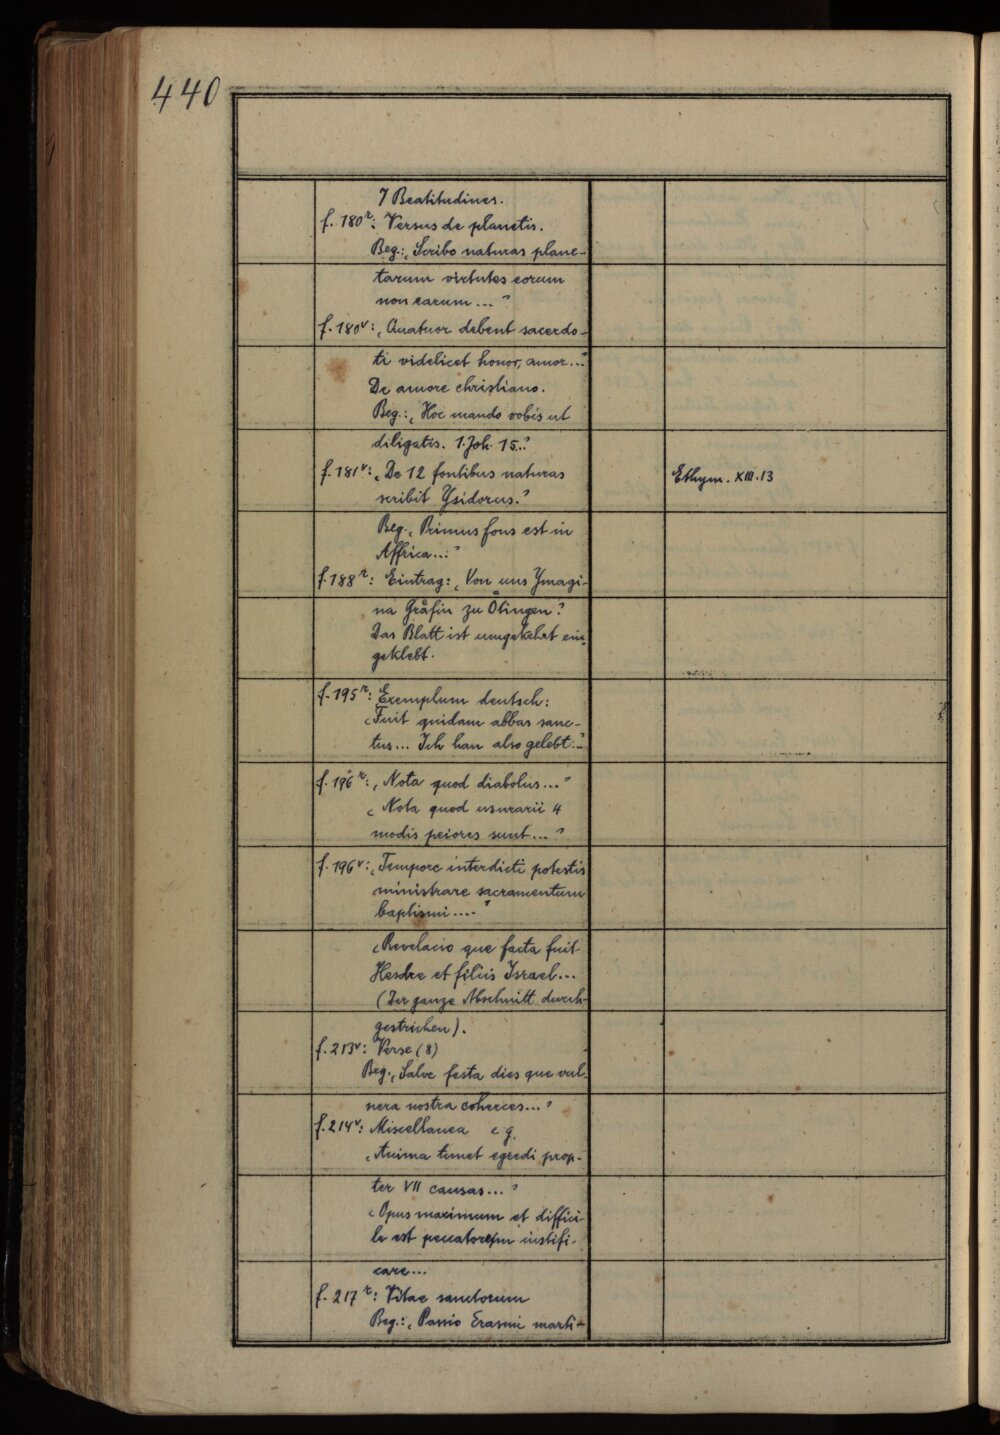 440
7 Beatitudines.
f. 180r: Versus de planetis.
Beg.: „Scribo naturas plane-
tarum virtutes eorum
non earum..."
f. 180v: „Quatuor debent sacerdo-
ti videlicet honor, amor..."
De amore christiano.
Beg.: „Hoc mando vobis ut
diligatis. 1. Joh. 15.."
f. 181v: „De 12 fontibus naturas
scribit Ysidorus."
Ethym. XIII. 13
Beg. „Primus fons est in
Affrica..."
f. 188r: Eintrag: „Von uns Ymagi-
na Gräfin zu Ötingen."
Das Blatt ist umgekehrt ein-
geklebt.
f. 195r: Exemplum deutsch:
„Fuit quidam abbas sanc-
tus... Ich han also gelebt..."
f. 196r: „Nota quod diabolus..."
„Nota quod usurarii 4
modis peiores sunt..."
f. 196v: „Tempore interdicti potestis
ministrare sacramentum
baptismi...."
„Revelacio que facta fuit
Hesdre et filiis Israel...
(Der ganze Abschnitt durch-
gestrichen).
f. 213v: Verse (8)
Beg. „Salve festa dies que vul-
nera nostra coherces..."
f. 214v: Miscellanea e.g.
„Anima timet egredi prop-
ter VII causas..."
„Opus maximum et diffici-
le est peccatorem iustifi-
care...
f. 217r: Vitae sanctorum
Beg.: „Passio Erasmi marti-